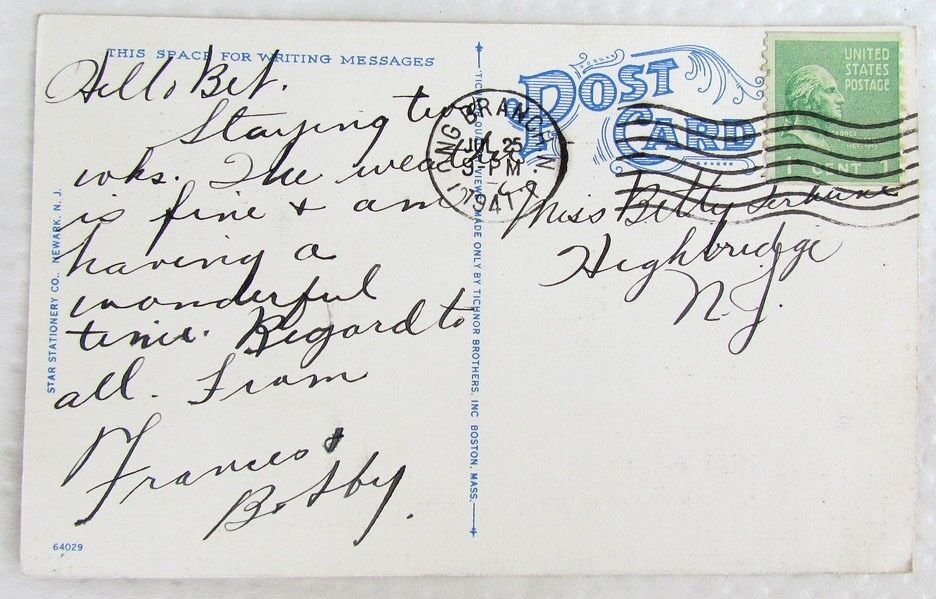 THIS SPACE FOR WRITING MESSAGES
Hello Bet.
Staying two
wks. The weather
is fine & am
having a
wonderful
time. Regard to
all. From
Frances &
Bobby.
STAR STATIONERY CO., NEWARK, N. J.
64029
"TICHNOR QUALITY VIEWS," MADE ONLY BY TICHNOR BROTHERS, INC. BOSTON, MASS.
POST
CARD
LONG BRANCH N.J.
JUL 25
9-PM
1941
UNITED
STATES
POSTAGE
1 CENT 1
Miss Betty
Highbridge
N.J.